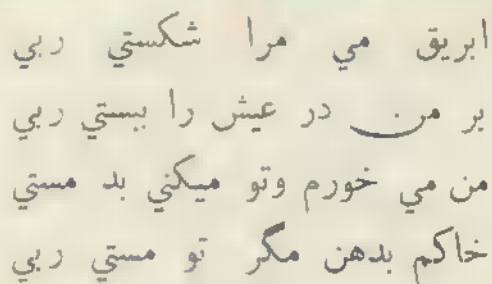 ابريق مي مرا شكستي ربي
بر من در عيش را ببستي ربي
من مي خورم وتو ميكني بد مستي
خاكم بدهن مگر تو مستي ربي